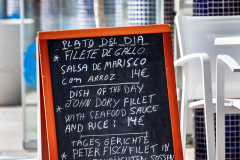 PLATO DEL DIA
* FILETE DE GALLO
SALSA DE MARISCO
con ARROZ 14€
DISH OF THE DAY
* JOHN DORY FILLET
WITH SEAFOOD SAUCE
AND RICE: 14€
TAGES GERICHTE!
* PETER FISCH FILET IN